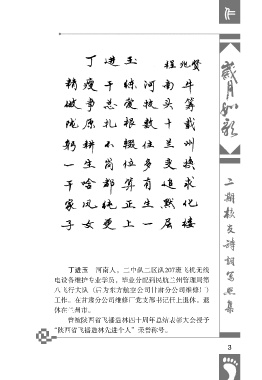 丁进玉 程兆賢
精瘦干练河南牛
做事总爱拔头筹
陇原扎根数十载
躬耕不辍位兰州
一生岗位多变换
干啥都算有追求
家风纯正生熙化
子女更上一层楼
丁进玉 河南人。二中队二区队207班飞机无线
电设备维护专业学员。毕业分配到民航兰州管理局第
八飞行大队（后为东方航空公司甘肃分公司维修厂）
工作。在甘肃分公司维修厂党支部书记任上退休。退
休在兰州市。
曾被陕西省飞播造林四十周年总结表彰大会授予
“陕西省飞播造林先进个人”荣誉称号。
岁月如歌
二期校友诗词写照集
3